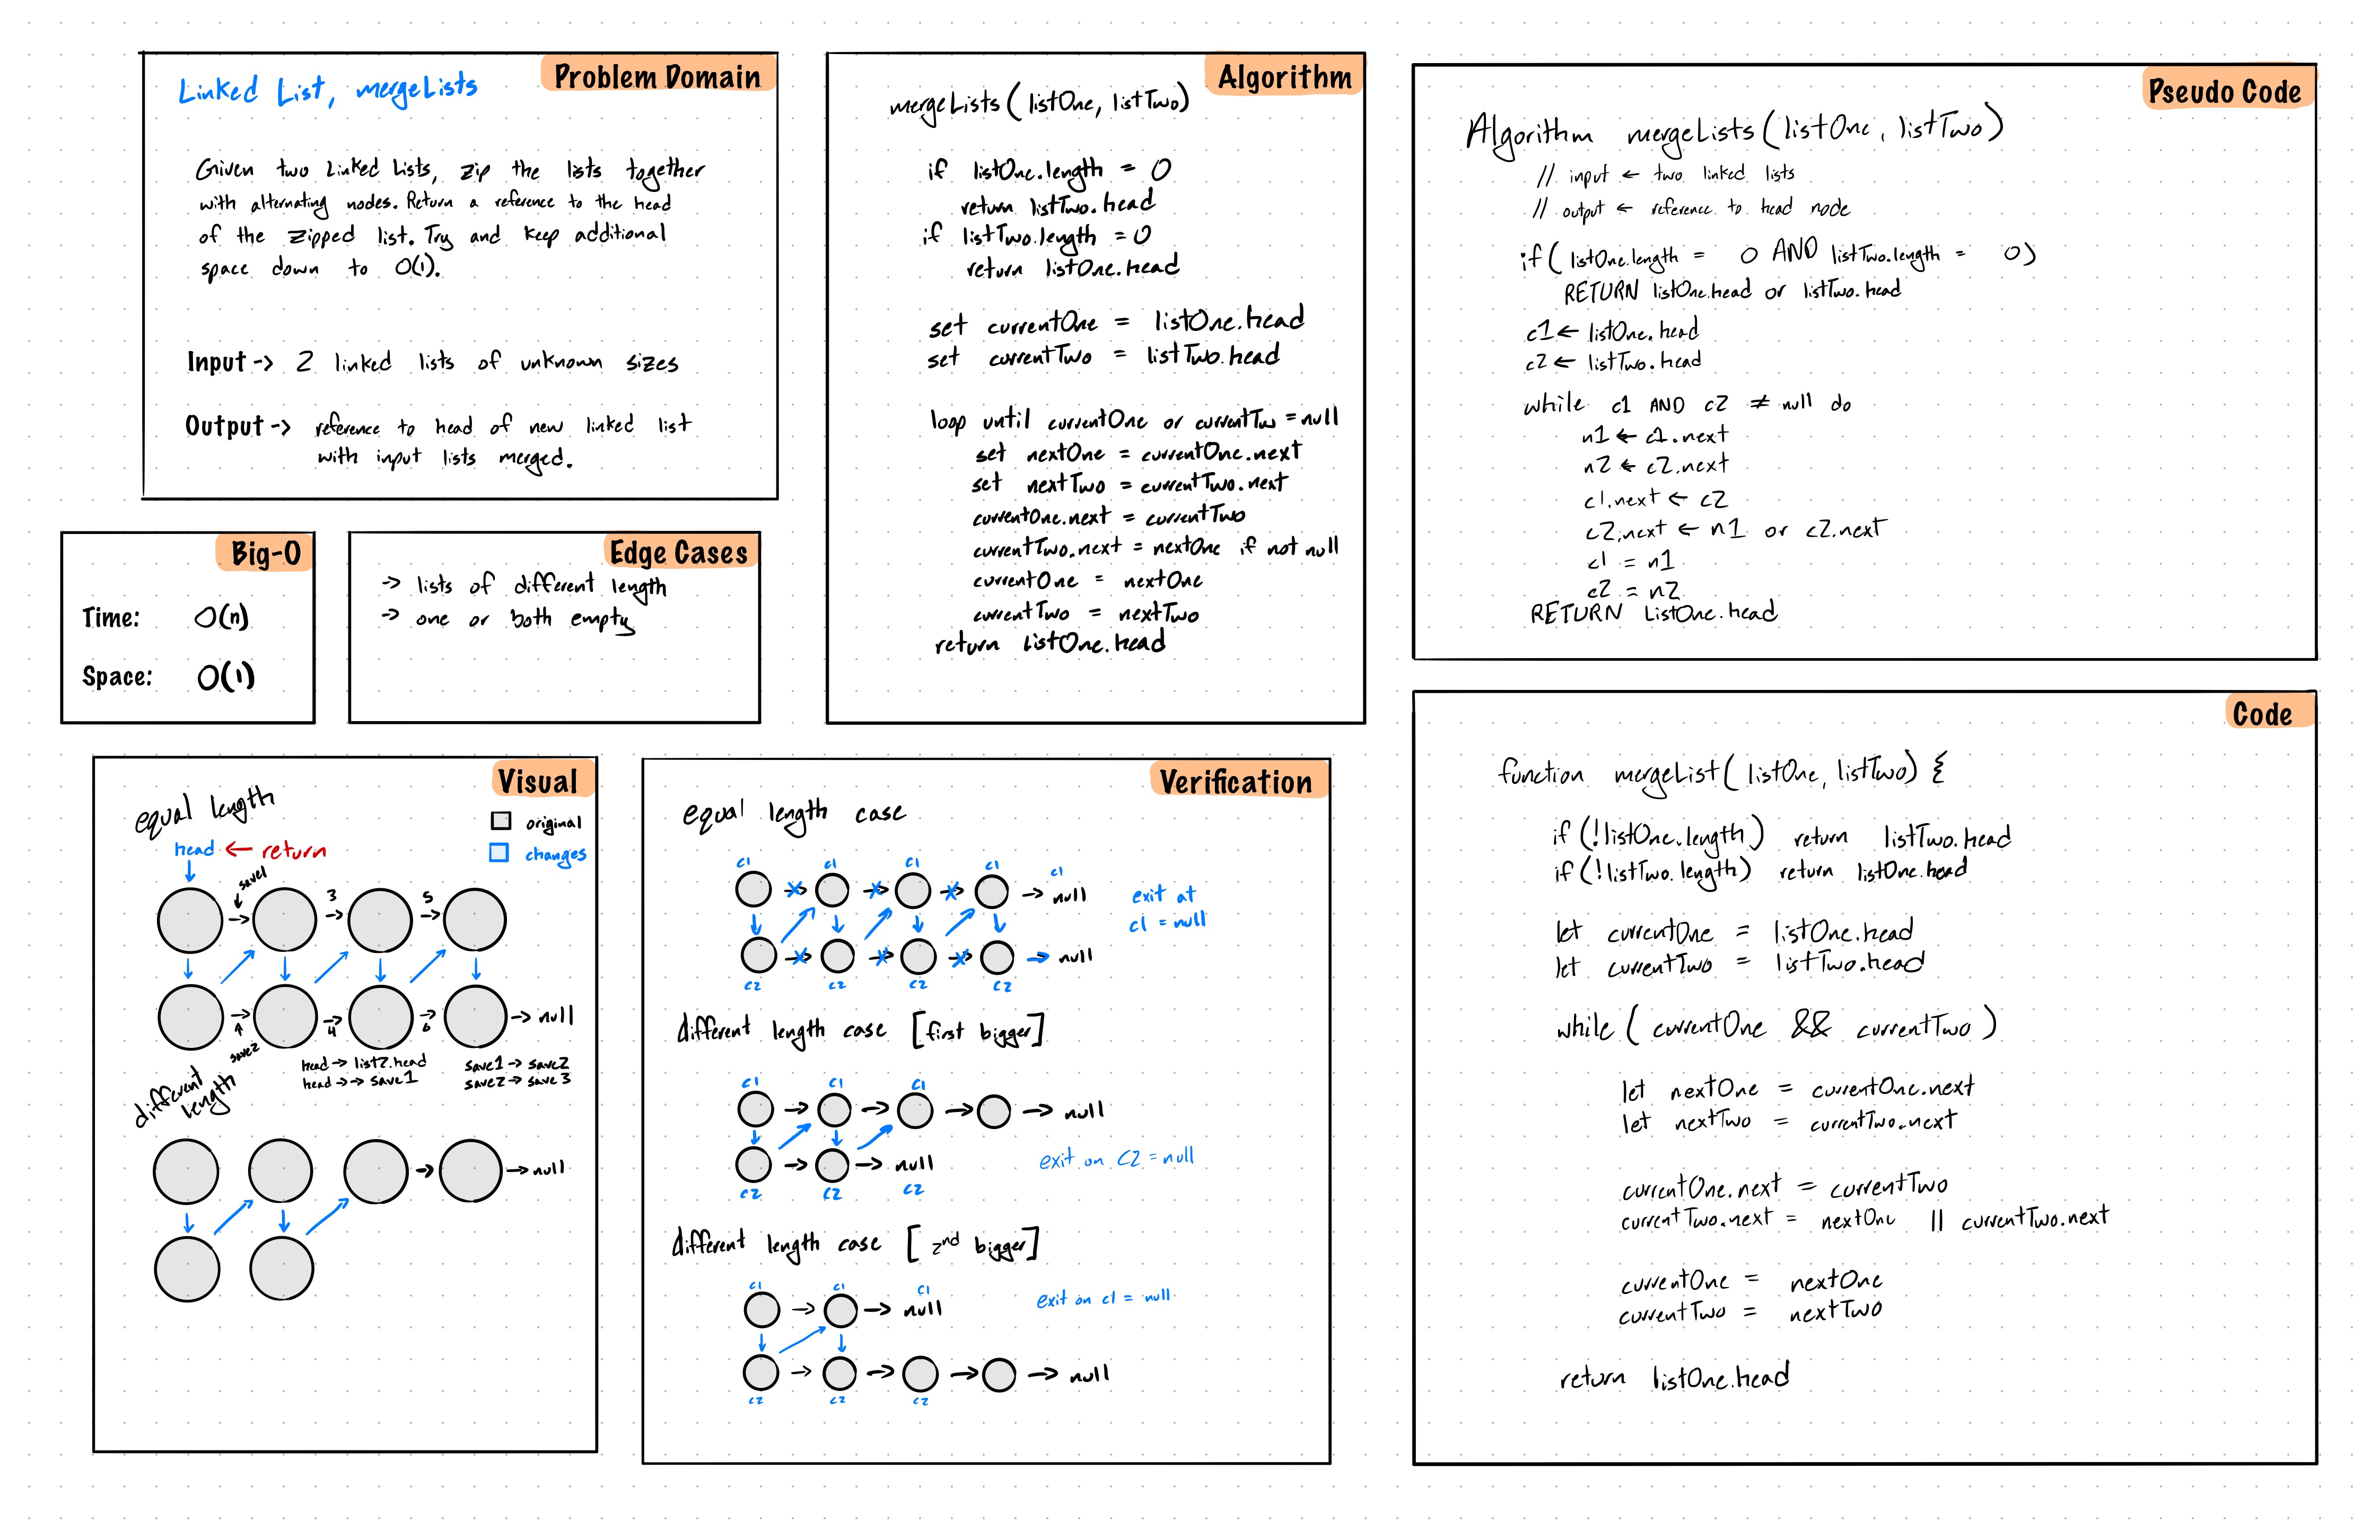 Problem Domain
Linked List, mergeLists
Given two Linked Lists, zip the lists together
with alternating nodes. Return a reference to the head
of the zipped list. Try and keep additional
space down to O(1).
Input -> 2 linked lists of unknown sizes
Output -> reference to head of new linked list
with input lists merged.
Big-O
Time: O(n)
Space: O(1)
Edge Cases
-> lists of different length
-> one or both empty
Algorithm
mergeLists(listOne, listTwo)
if listOne.length = 0
return listTwo.head
if listTwo.length = 0
return listOne.head
set currentOne = listOne.head
set currentTwo = listTwo.head
loop until currentOne or currentTw = null
set nextOne = currentOne.next
set nextTwo = currentTwo.next
currentOne.next = currentTwo
currentTwo.next = nextOne if not null
currentOne = nextOne
currentTwo = nextTwo
return listOne.head
Pseudo Code
Algorithm mergeLists(listOne, listTwo)
// input ← two linked lists
// output ← reference to head node
if( listOne.length = 0 AND listTwo.length = 0)
RETURN listOne.head or listTwo.head
c1 ← listOne.head
c2 ← listTwo.head
while c1 AND c2 ≠ null do
n1 ← c1.next
n2 ← c2.next
c1.next ← c2
c2.next ← n1 or c2.next
c1 = n1
c2 = n2
RETURN ListOne.head
Visual
equal length
original
changes
head ← return
save1
3
5
save2
4
6
→ null
head → list2.head
head →→ save1
save1 → save2
save2 → save3
different
length
→ null
Verification
equal length case
c1 c1 c1 c1 c1
→ null
exit at
c1 = null
→ null
c2 c2 c2 c2
different length case [first bigger]
c1 c1 c1
→ null
→ null
exit on c2 = null
c2 c2 c2
different length case [2nd bigger]
c1 c1 c1
→ null
exit on c1 = null
→ null
c2 c2 c2
Code
function mergeList( listOne, listTwo) {
if (!listOne.length) return listTwo.head
if (!listTwo.length) return listOne.head
let currentOne = listOne.head
let currentTwo = listTwo.head
while ( currentOne && currentTwo )
let nextOne = currentOne.next
let nextTwo = currentTwo.next
currentOne.next = currentTwo
currentTwo.next = nextOne || currentTwo.next
currentOne = nextOne
currentTwo = nextTwo
return listOne.head